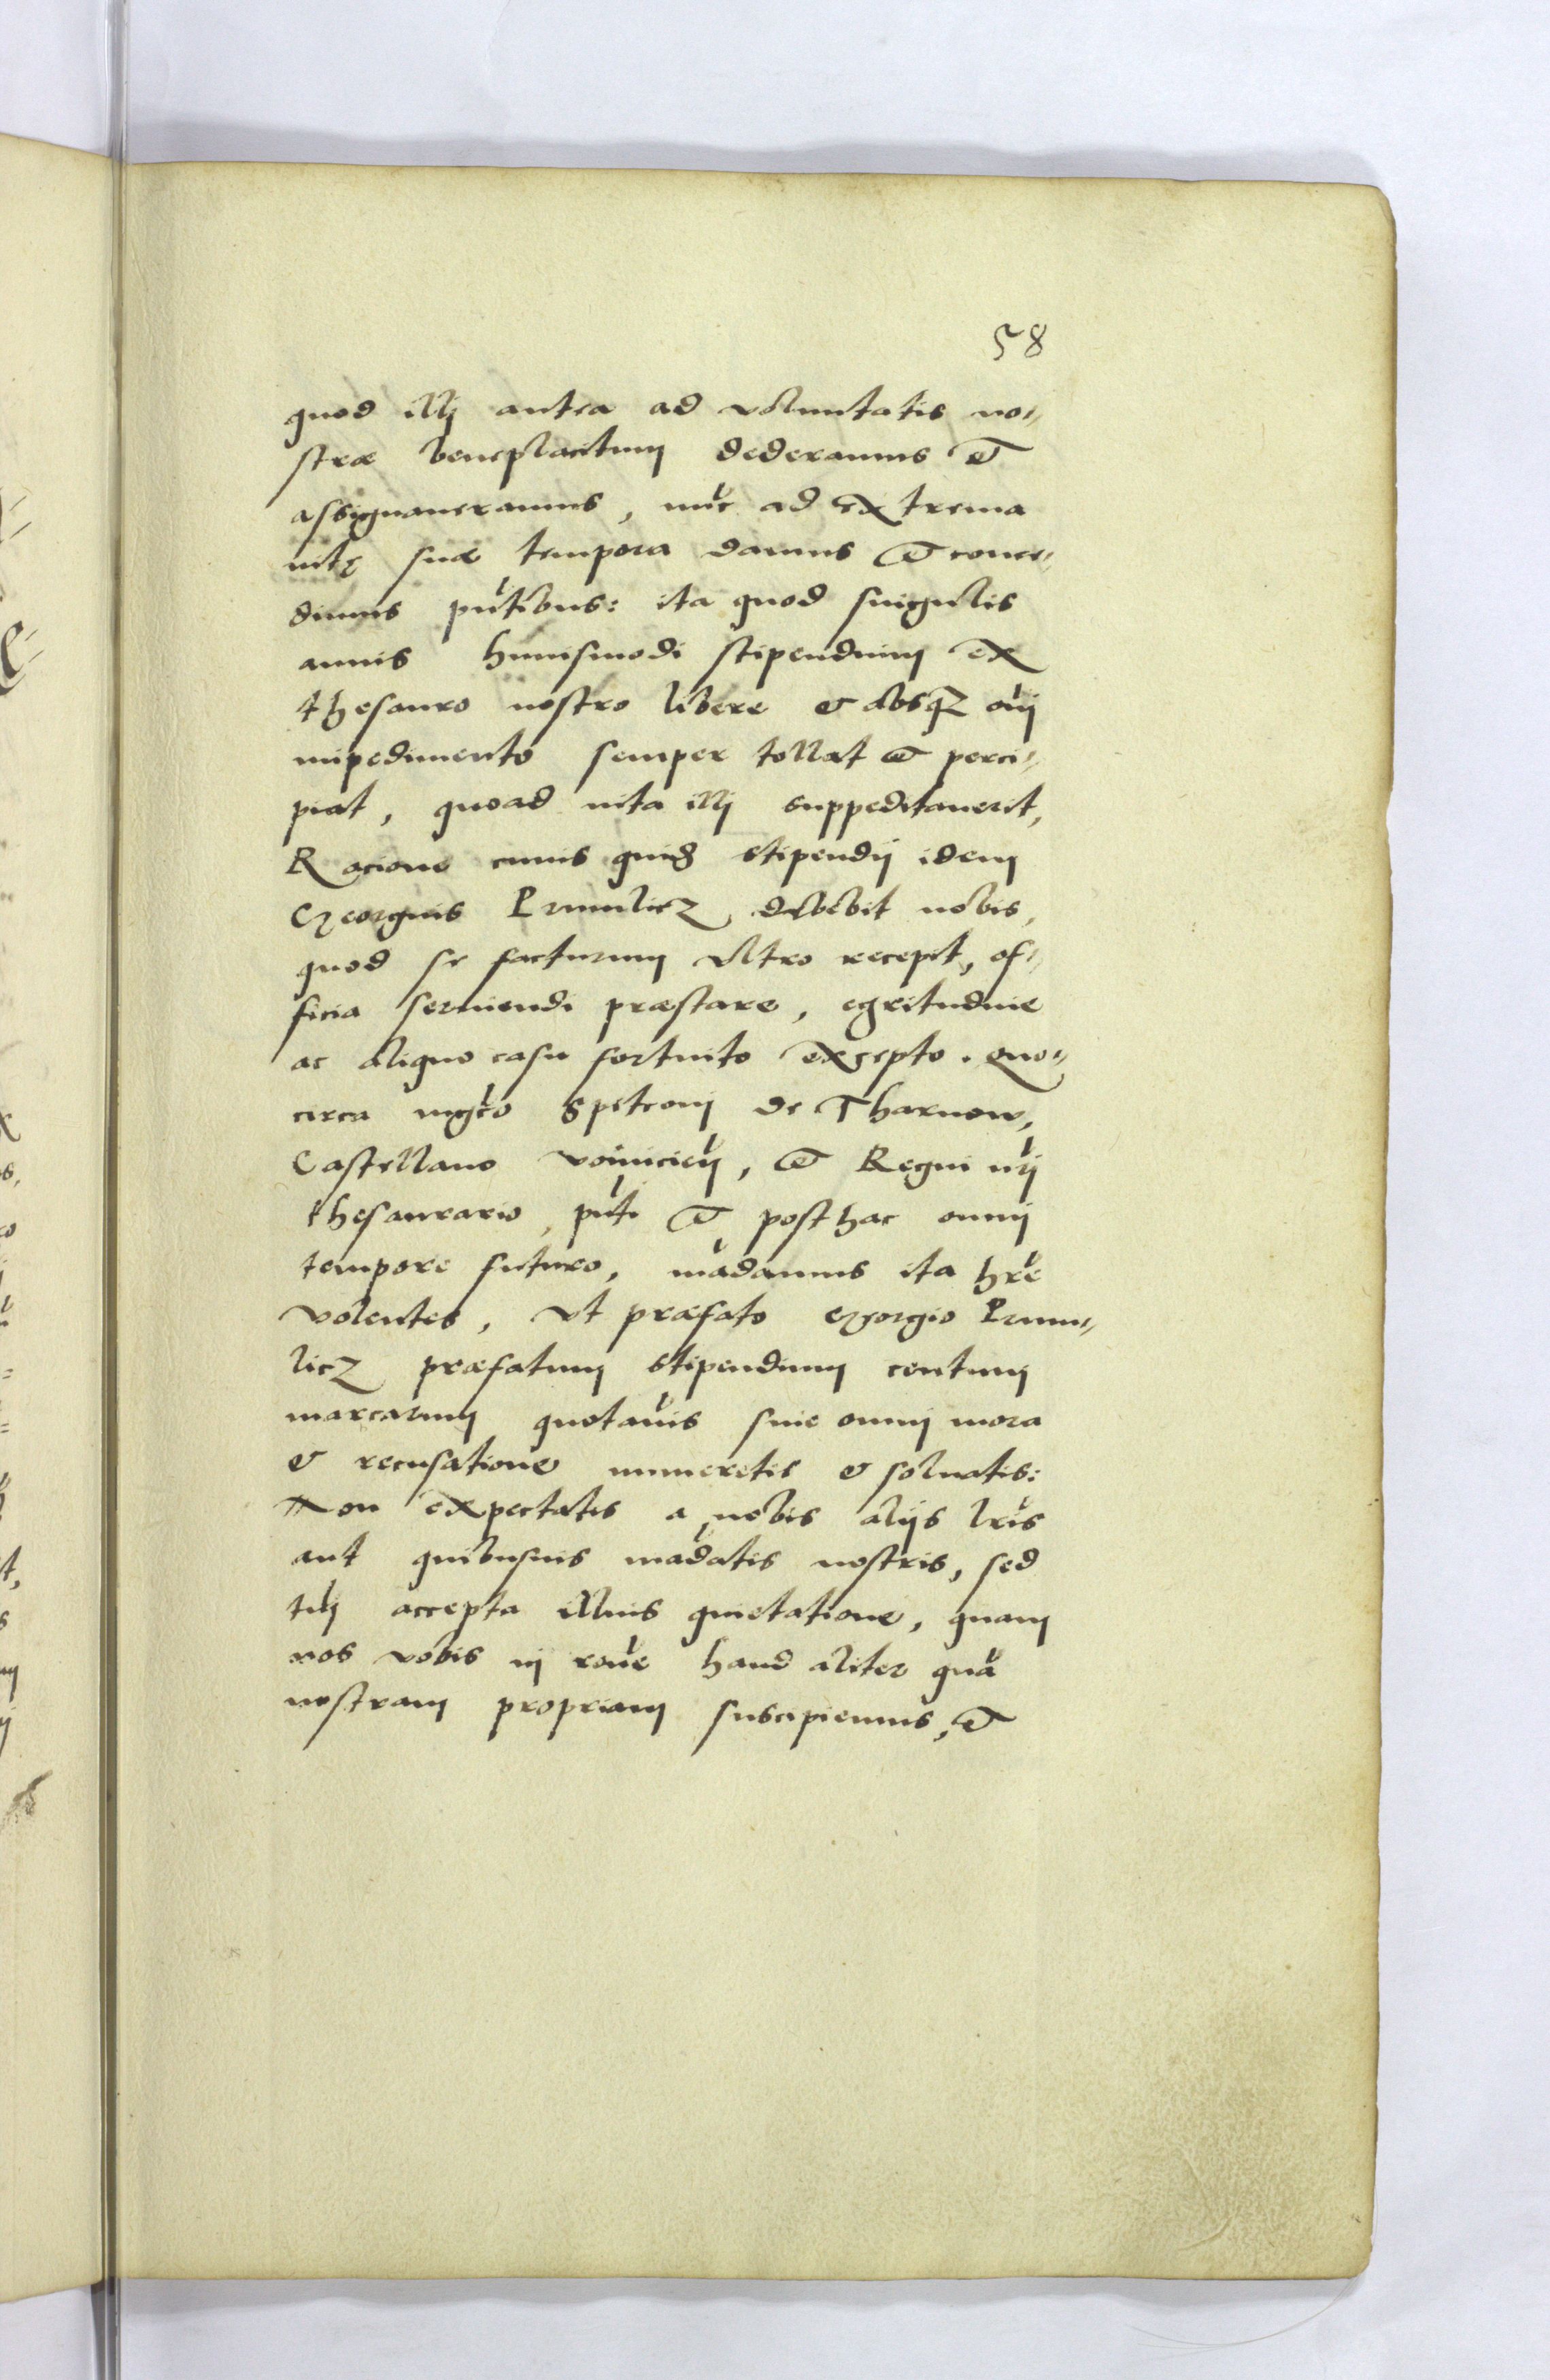 58
quod illi antea ad voluntatis no„
stræ beneplacitum dederamus et
assignaueramus, nuc ad extrema
uitę suæ tempora damus et conce„
dimus pntibus: ita quod singulis
annis huiusmodi stipendium ex
thesauro nostro libere et absqz oi
impedimento semper tollat et perci„
piat, quoad uita illi suppeditauerit,
Racione cuius quid stipendij idem
Georgius Prunlicz debebit nobis,
quod se facturum vltro recepit, of„
ficia seruiendi præstare, egritudine
ac aliquo casu fortuito excepto. Quo„
circa mgco Spitconi de Tharnow,
Castellano voinicien, et Regni nri
thesaurario, pnti et posthac omni
tempore futuro, madamus ita hre
volentes, vt præfato Georgio Prun„
licz præfatum stipendium centum
marcarum quotanis sine omni mora
et recusatione numeretis et soluatis:
Non expectatis a nobis alijs lris
aut quibusuis madatis nostris, sed
tm accepta illius quietatione, quam
nos vobis in rone haud aliter qua
nostram propriam suscipiemus, et